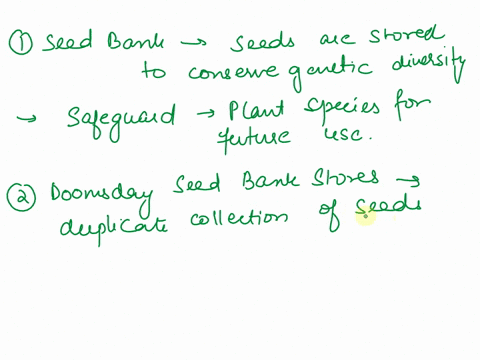 ① Seed Bank → Seeds are stored
to conserve genetic diversity
→ Safeguard → Plant Species for
future use.
② Doomsday Seed Bank Stores →
duplicate collection of seeds